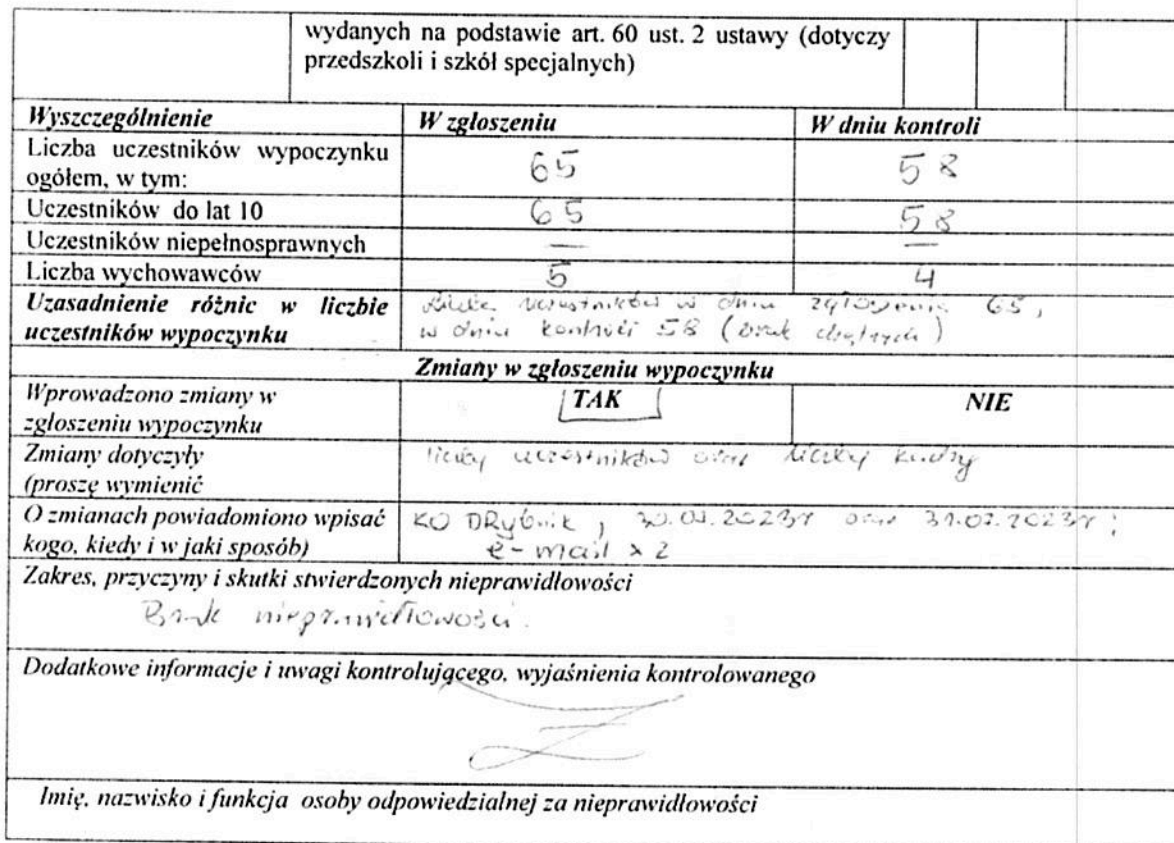 wydanych na podstawie art. 60 ust. 2 ustawy (dotyczy
przedszkoli i szkół specjalnych)
Wyszczególnienie W zgłoszeniu W dniu kontroli
Liczba uczestników wypoczynku
ogółem, w tym: 65 58
Uczestników do lat 10 65 58
Uczestników niepełnosprawnych — —
Liczba wychowawców 5 4
Uzasadnienie różnic w liczbie
uczestników wypoczynku
uczestników w dniu zgłoszenia 65,
w dniu kontroli 58 (brak chętnych)
Zmiany w zgłoszeniu wypoczynku
Wprowadzono zmiany w
zgłoszeniu wypoczynku
TAK NIE
Zmiany dotyczyły
(proszę wymienić
liczby uczestników oraz liczby kadry
O zmianach powiadomiono wpisać
kogo, kiedy i w jaki sposób)
KO DRybnik, 2023r oraz 31.07.2023r;
e-mail x 2
Zakres, przyczyny i skutki stwierdzonych nieprawidłowości
Brak nieprawidłowości.
Dodatkowe informacje i uwagi kontrolującego, wyjaśnienia kontrolowanego
Imię, nazwisko i funkcja osoby odpowiedzialnej za nieprawidłowości